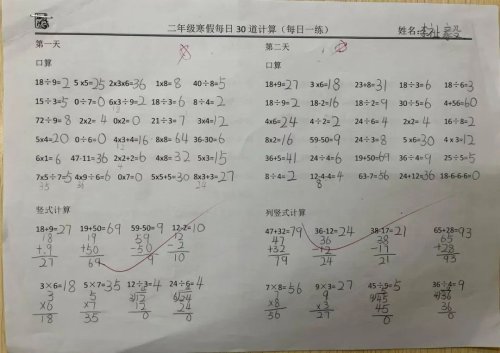 二年级寒假每日30道计算（每日一练）
姓名:
第一天
第二天
口算
口算
18÷9=2 5x5=25 2x3x6=36 1x8=8 40÷8=5
18+9=27 3x6=18 23+8=31 18÷3=6 18÷6=3
15÷3=5 0÷7=0 6x3÷9=2 18÷3=6 8÷4=2
18÷9=2 18-2=16 18÷2=9 30÷5=6 4+56=60
72÷9=8 2x2=4 0x2=0 21÷3=7 3x4=12
4x6=24 4÷2=2 24÷6=4 2x2=4 16÷8=2
5x4=20 0÷6=0 4x3+4=16 8x8=64 36-30=6
8x2=16 59-50=9 24÷3=8 5x6=30 4x3=12
6x1=6 47-11=36 2x2+2=6 4x8=32 5x3=15
36+5=41 24÷4=6 19+50=69 36÷4=9 25÷5=5
7x5÷7=5 4x9÷6=6 0x7=0 5x5+5=30 8x3+3=27
8÷4=2 12-4-4=4 63-7=56 24+12=36 18-6-6-6=0
竖式计算
列竖式计算
18+9=27 19+50=69 59-50=9 12-2=10
47+32=79 36-12=24 38-17=21 65+28=93
3×6=18 5×7=35 12÷3=4 24÷6=4
7×8=56 9×3=27 45÷9=5 36÷4=9